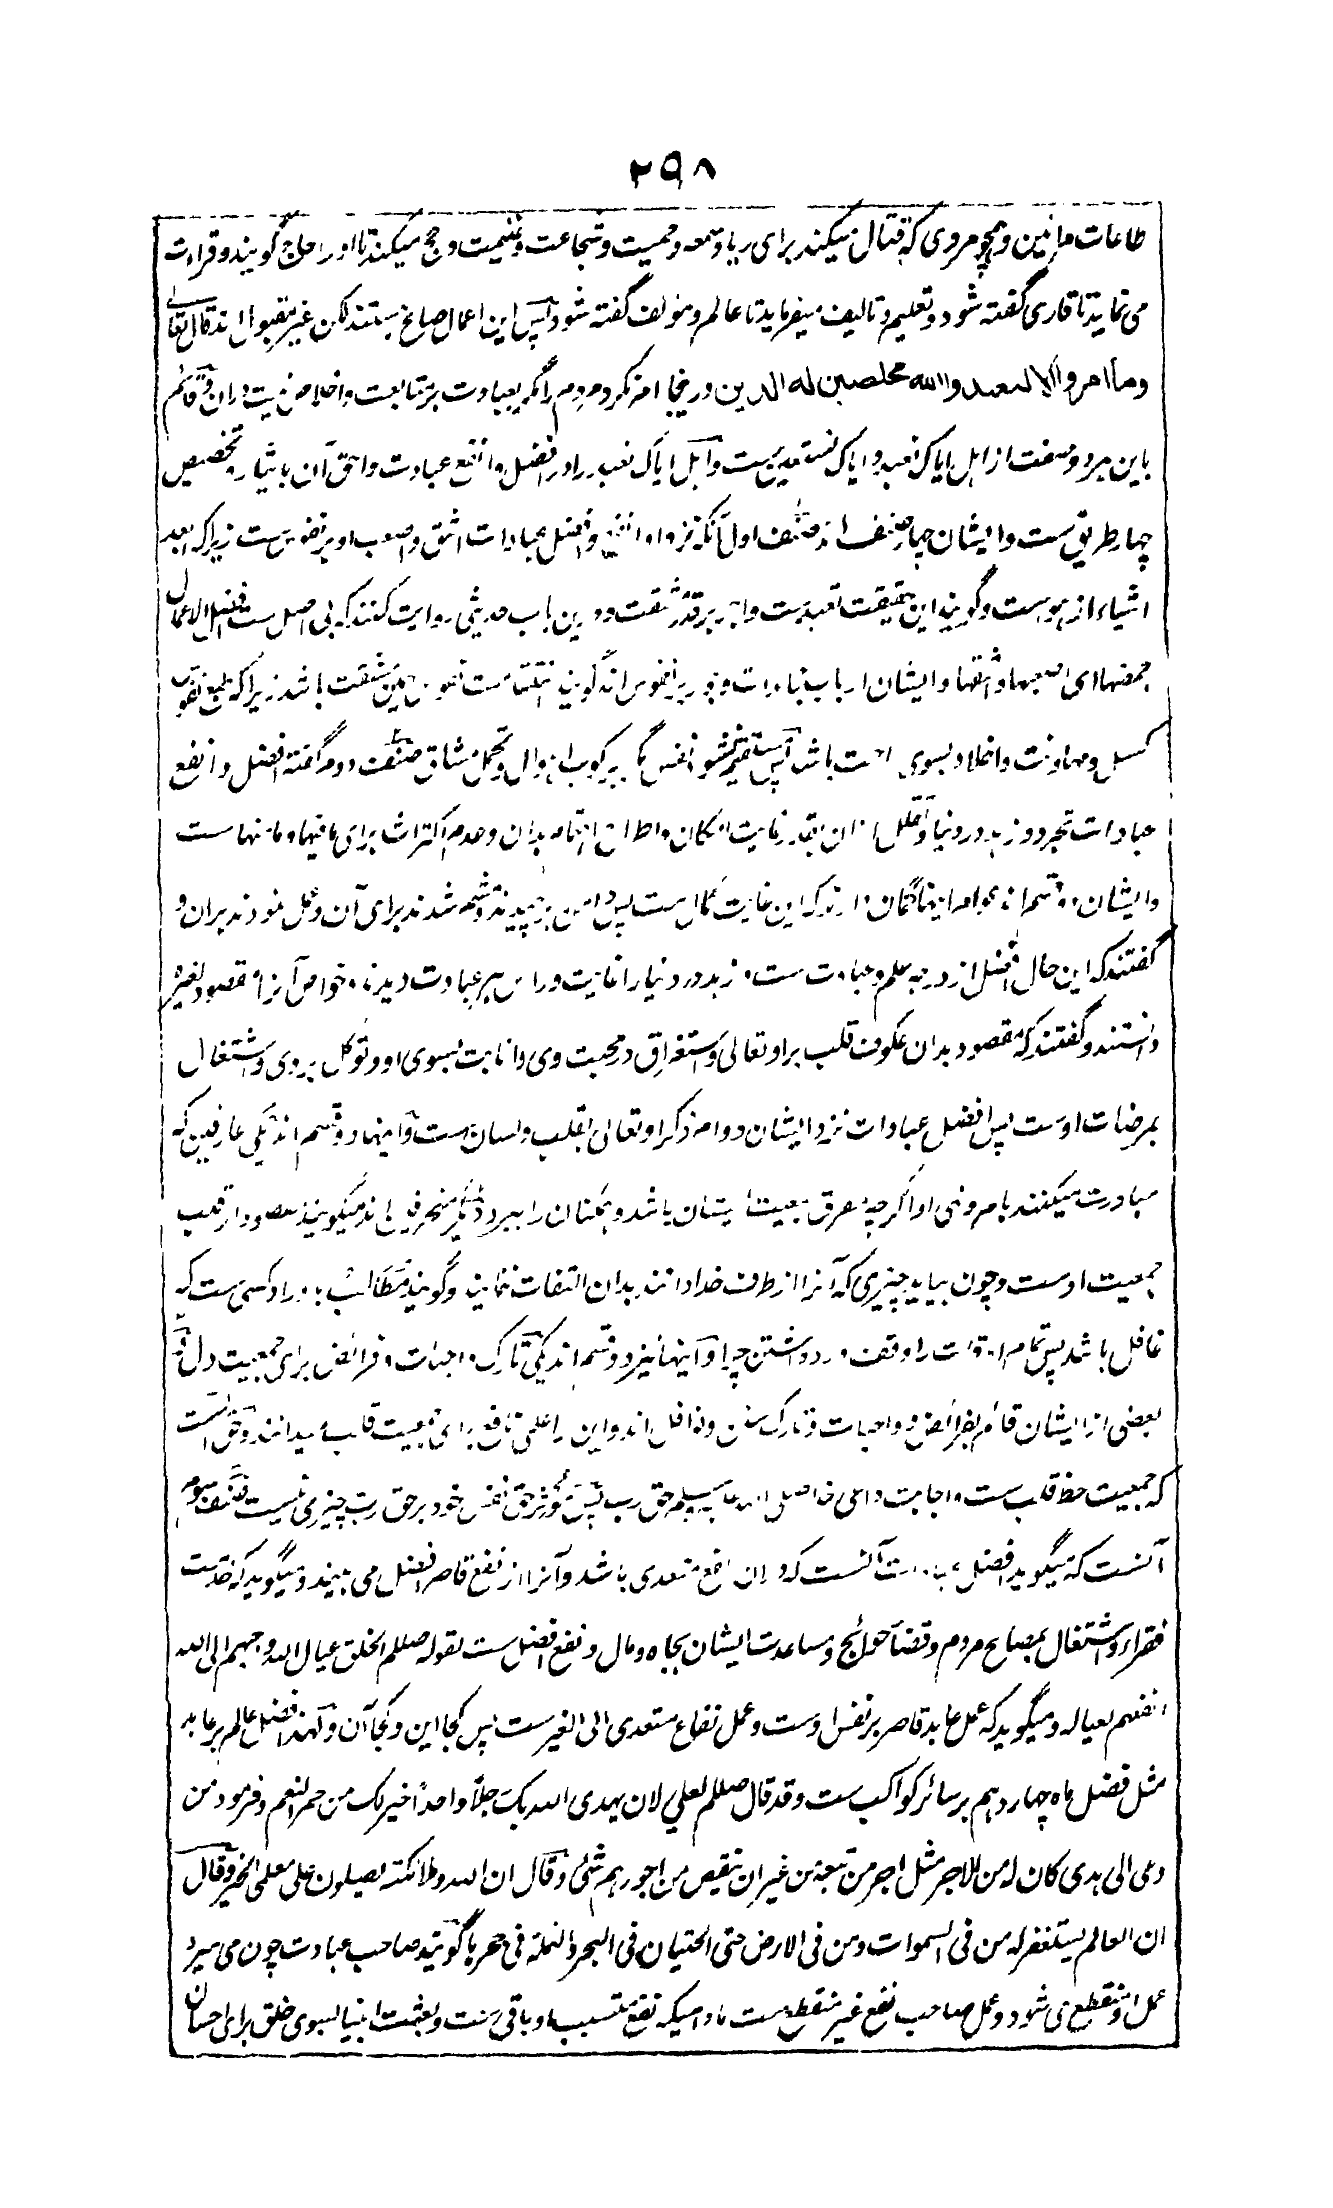 ۲۹۸
طاعات مرائین و همچو مردی که قتال میکند برای ریا و سمعه و حمیت و شجاعت و غنیمت و حج میکند تا او را حاج گویند و قراءت
می نماید تا قاری گفته شود و تعلیم و تالیف میفرماید تا عالم و مؤلف گفته شود پس این اعمال صالح هستند لکن غیر مقبول اند قال تعالی
وما امروا الا لیعبدوا الله مخلصین له الدین و درینجا امر نکرد مردم را مگر بعبادت بر متابعت و اخلاص نیت دران و قائم
باین هر دو صفت از اهل ایاک نعبد و ایاک نستعین ست و اهل ایاک نعبد را در افضل و انفع عبادت و احق آن بایثار و تخصیص
چهار طریق ست و ایشان چهار صنف اند صنف اول آنکه نزد او انفع و افضل عبادات اشق و اصعب او بر نفوس ست زیراکه ابعد
اشیاء از هواست و گویند این حقیقت تعبد ست و اجر بر قدر مشقت و درین باب حدیثی روایت کنند که بی اصل ست افضل الاعمال
احمزها ای اصعبها و اشقها و ایشان ارباب مجاهدات و جور بر نفوس اند گویند استقامت نفوس بهمین مشقت باشد زیراکه طبع نفوس
کسل و مهاونت و اخلاد بسوی راحت باشد پس مستقیم نشود نفس مگر برکوب اهوال و تحمل مشاق صنف دوم گفته افضل و انفع
عبادات تجرد و زهد در دنیا و تقلل ازان بقدر غایت امکان و اطراح اهتمام بدان و عدم اکتراث برای ما فیها و ما منها ست
و ایشان دو قسم اند عوام اینها گمان دارند که این غایت کمال ست پس دامن برچیدند و مشمر شدند برای آن و عمل نمودند بران و
گفتند که این حال افضل از درجه علم و عبادت ست و زهد در دنیا را غایت و راس هر عبادت دیدند و خواص آنرا مقصود لغیره
دانستند و گفتند که مقصود بدان عکوف قلب بر او تعالی و استغراق در محبت وی و انابت بسوی او و توکل بر وی و اشتغال
بمرضات اوست پس افضل عبادات نزد ایشان دوام ذکر او تعالی بقلب و لسان ست و اینها دو قسم اند یکی عارفین که
مبادرت میکنند بامر و نهی او اگرچه مفرق جمعیت ایشان باشد و منحرفین اند میگویند مقصود از قلب
جمعیت اوست و چون بیاید چیزی که آنرا از طرف خدا دانند بدان التفات ننمایند و گویند مطالب باوراد کسی ست که
غافل باشد پس تمام اوقات را وقف ورد داشتن چرا و اینها نیز دو قسم اند یکی تارک واجبات و فرائض برای جمعیت دل و
بعضی از ایشان قائم بفرائض و واجبات و تارک سنن و نوافل اند و این را علمی نافع برای جمعیت قلب میدانند و حق آنست
که جمعیت حظ قلب ست و اجابت داعی خدا حق رب پس مؤثر حق نفس خود بر حق رب چیزی نیست صنف سوم
آنست که میگوید افضل عبادات آنست که دران نفع متعدی باشد و آنرا از نفع قاصر افضل می بیند و میگوید که خدمت
فقراء و اشتغال بمصالح مردم و قضاء حوائج و مساعدت ایشان بجاه و مال و نفع افضل ست لقوله صلعم الخلق عیال الله و احبهم الی الله
انفعهم لعیاله و میگوید که عمل عابد قاصر بر نفس اوست و عمل نفاع متعدی الی الغیر ست پس کجا این و کجا آن و لهذا فضل عالم بر عابد
مثل فضل ماه چهاردهم بر سائر کواکب ست و قد قال صلعم لعلی لان یهدی الله بک رجلاً واحداً خیر لک من حمر النعم و فرمود من
دعی الی هدی کان له من الاجر مثل اجر من تبعه من غیر ان ینقص من اجورهم شیٔ وقال ان الله و ملائکته یصلون علی معلمی الخیر وقال
ان العالم یستغفر له من فی السموات و من فی الارض حتی الحیتان فی البحر و النملة فی جحرها گویند صاحب عبادت چون می میرد
عمل او منقطع می شود و عمل صاحب نفع غیر منقطع ست مادامیکه نفع منتسب باو باقی ست و بعثت انبیا بسوی خلق برای احسان